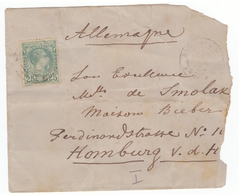 Allemagne
Son Excellence
de Smolak
Maison Bieber
Ferdinandstrasse No 16
Homburg v. d. H
I